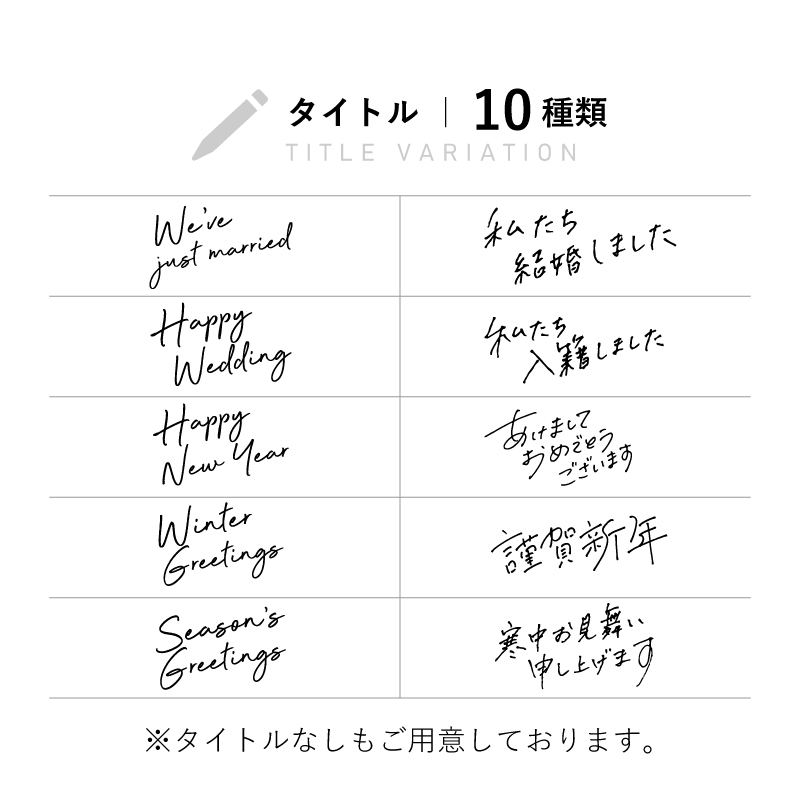 タイトル | 10種類
TITLE VARIATION
We've
just married
私たち
結婚しました
Happy
Wedding
私たち
入籍しました
Happy
New Year
あけまして
おめでとう
ございます
Winter
Greetings
謹賀新年
Season's
Greetings
寒中お見舞い
申し上げます
※タイトルなしもご用意しております。